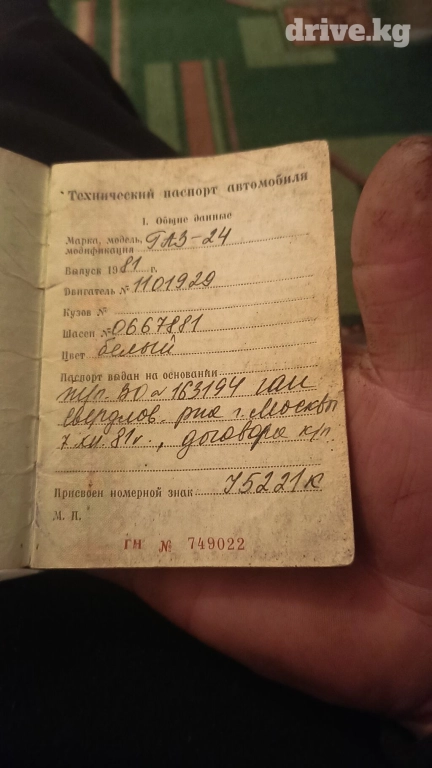 drive.kg
Технический паспорт автомобиля
1. Общие данные
Марка, модель, ГАЗ-24
модификация
Выпуск 1981 г.
Двигатель № 1101929
Кузов №
Шасси № 0667881
Цвет белый
Паспорт выдан на основании
т/п. ВО № 163194 ГАИ
свердлов. р-на г. Москвы
7 XII 81 г., договора к/п.
Присвоен номерной знак
М. П.
ГН № 749022